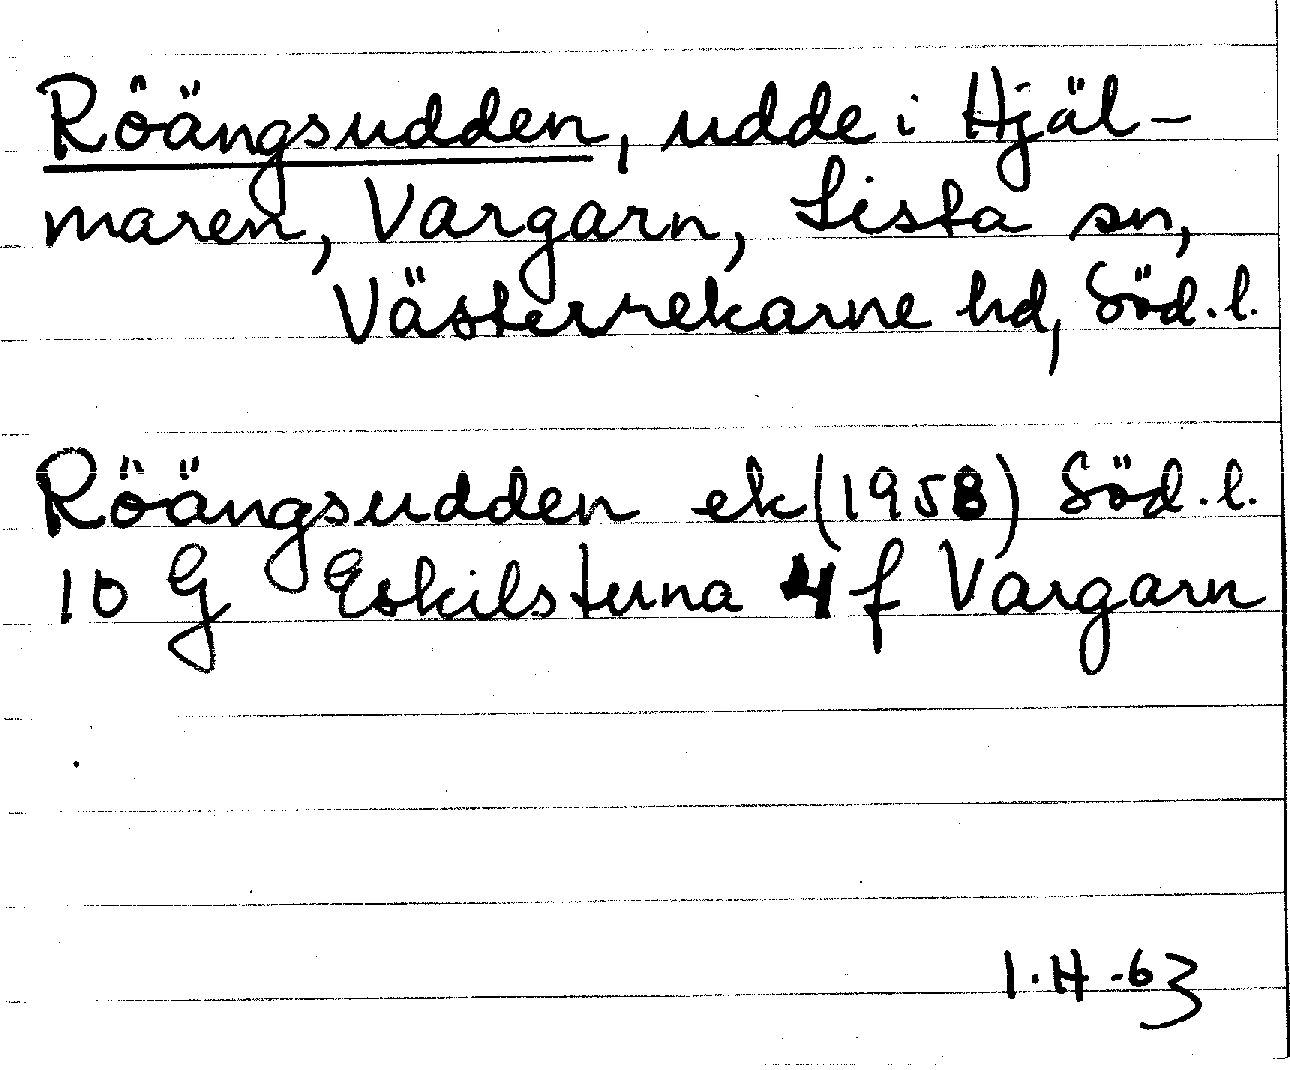 Röängsudden, udde i Hjäl-
maren, Vargarn, Lista sn,
Västerrekarne hd, Söd. l.
Röängsudden ek (1958) Söd. l.
10 G Eskilstuna 4 f Vargarn
I. H -63